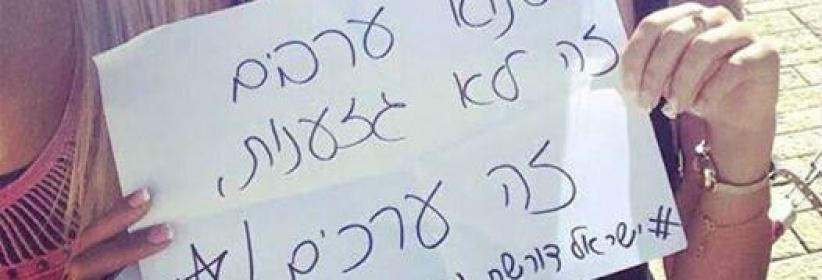 ערבים
זה לא גזענות,
זה ערכים!
#ישראל דורשת